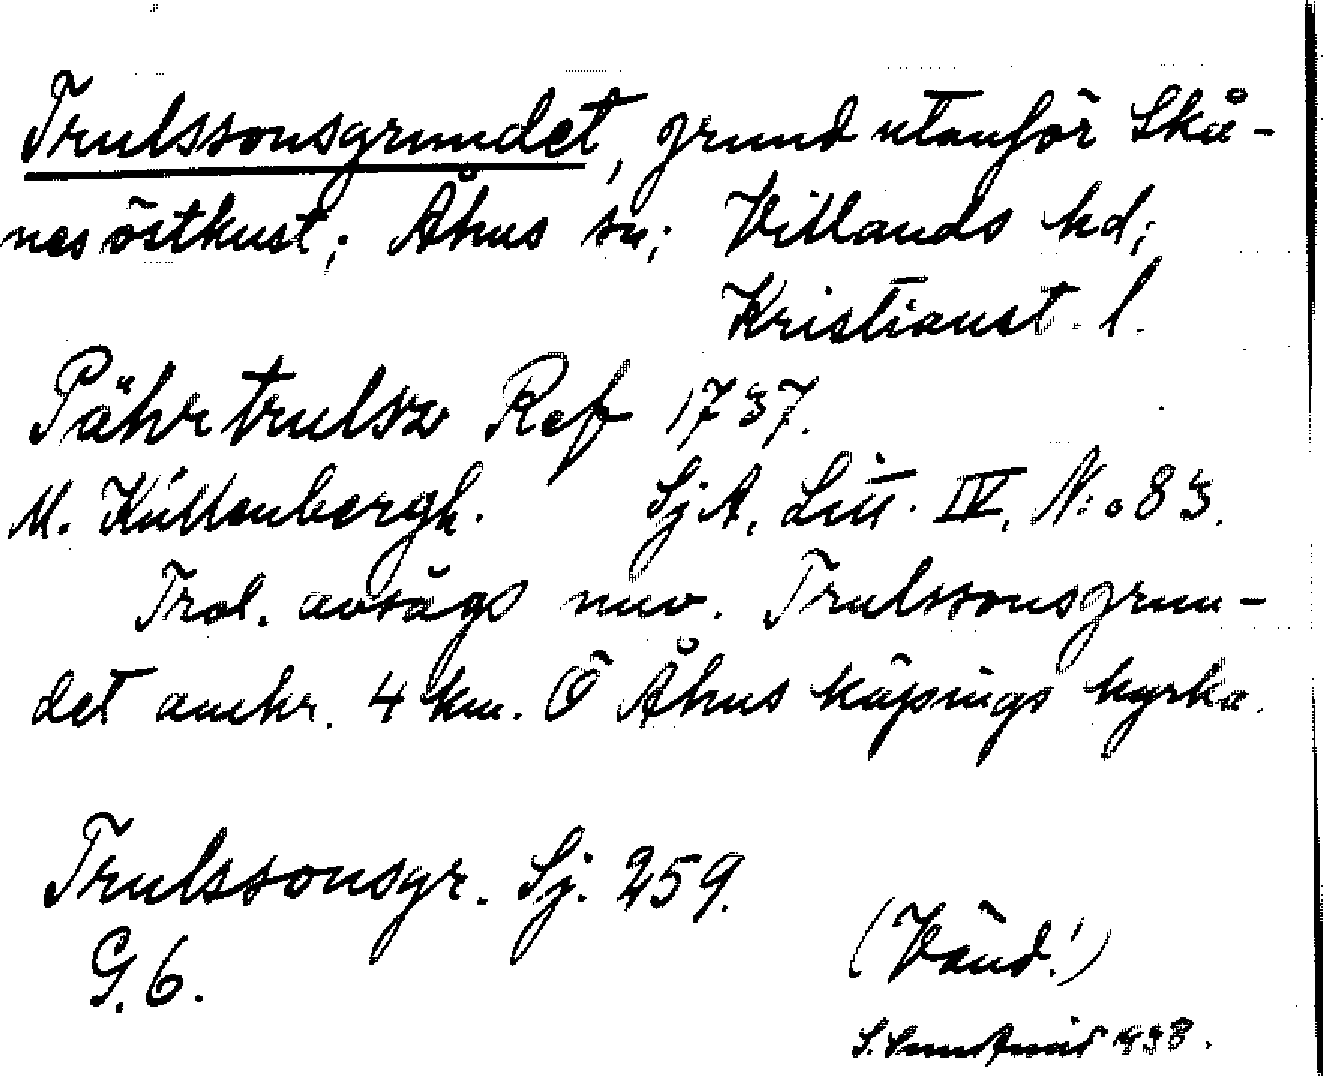 Trulssonsgrundet, grund utanför Skå-
nes östkust; Åhus sn; Villands hd;
Kristianst. l.
Pähr trulsz Ref 1737.
M. Küllenbergh. SjA, Litt. IV, N:o 83.
Trol. avsågs nuv. Trulssonsgrun-
det omkr. 4 km. Ö Åhus köpings kyrka.
Trulssonsgr. Sj. 259.
G. 6.
(Vänd!)
S. 1938.